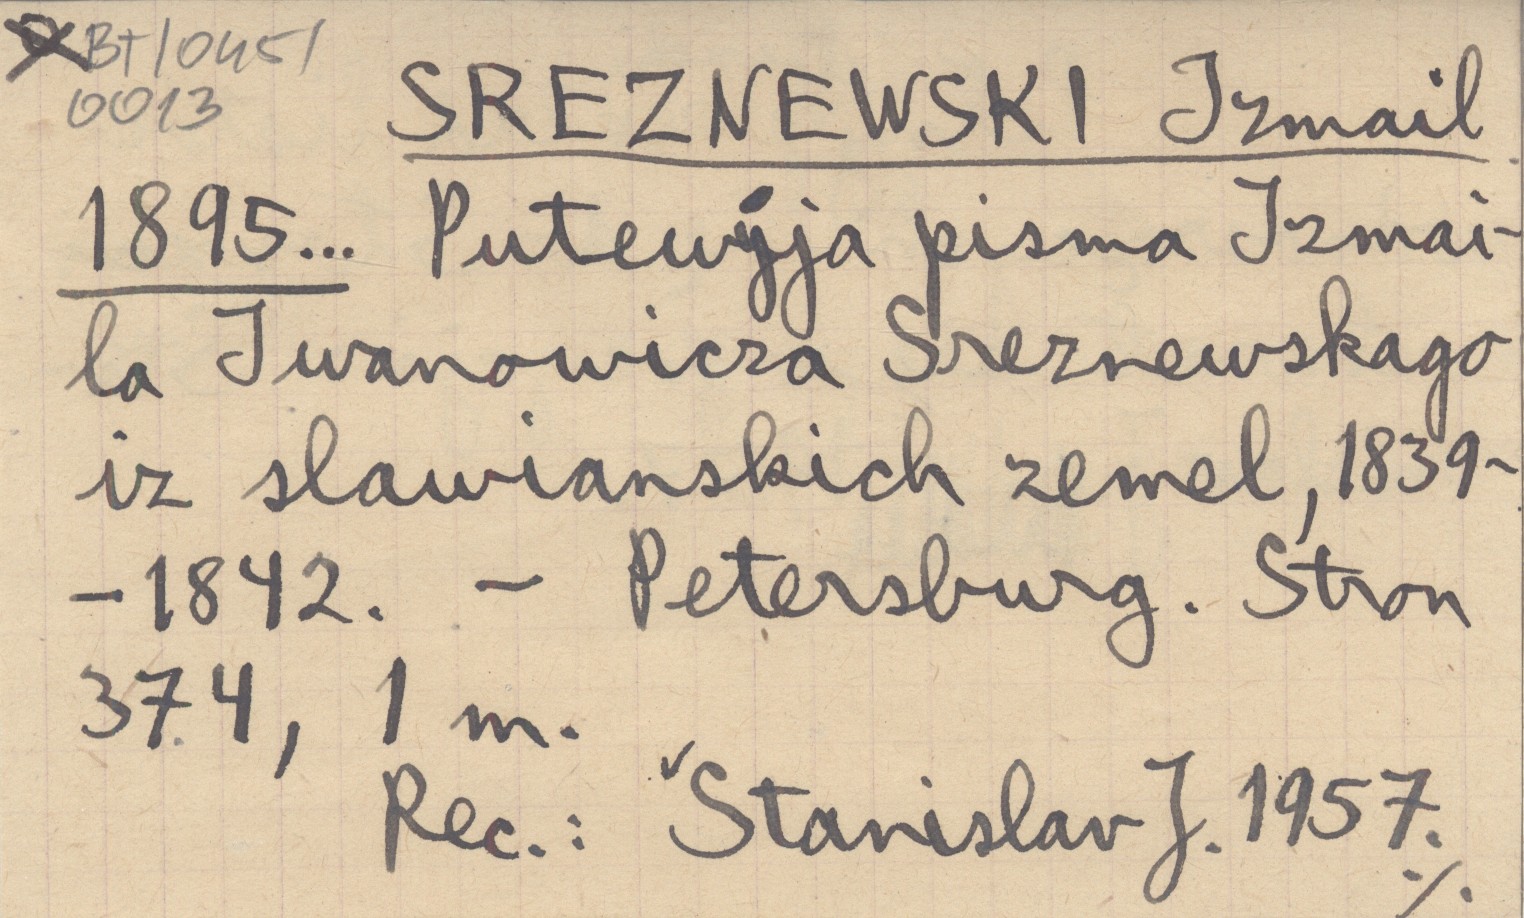 BT/045/
0013
SREZNEWSKI Izmail
1895... Putewyja pisma Izmai-
la Iwanowicza Sreznewskago
iz slawianskich zemel, 1839-
-1842. - Petersburg. Stron
374, 1 m.
Rec.: Stanislav J. 1957.
./.